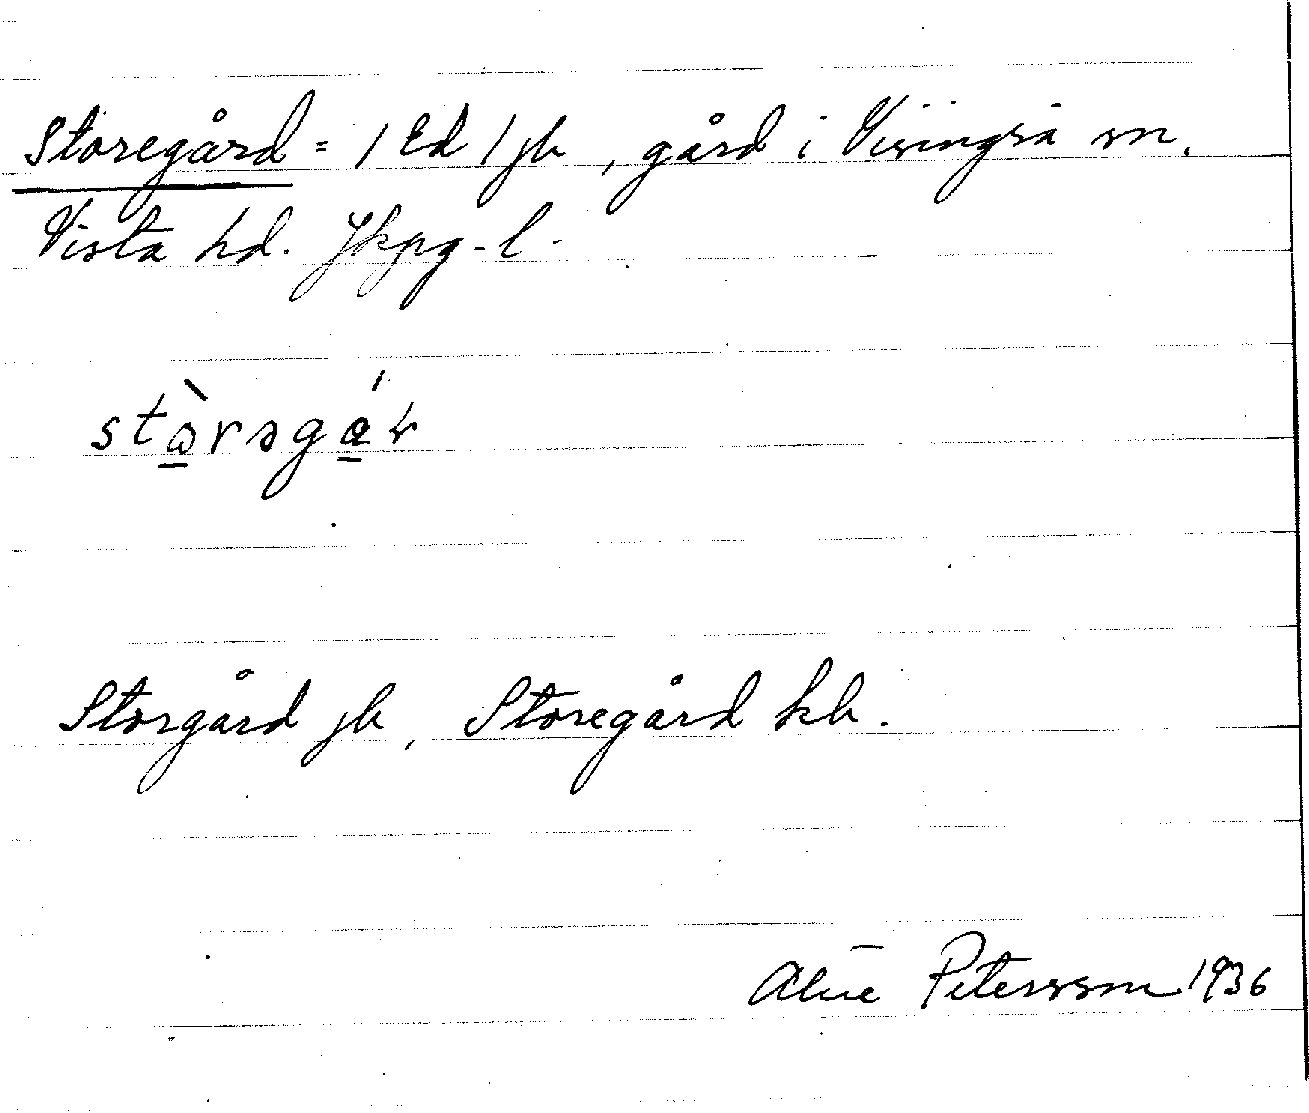 Storegård = 1 Ed 1 jb, gård i Visingsö sn.
Vista hd. Jkpg-l.
stòrəgár
Storgård jb, Storegård kb.
Petersson 1936